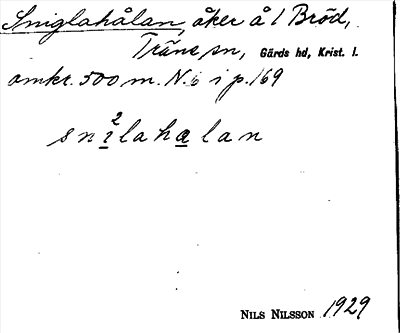 Sniglahålan, åker å 1 Bröd,
Träne sn, Gärds hd, Krist. l.
omkr. 500 m. N. i p. 169
sni²lahalan
NILS NILSSON 1929